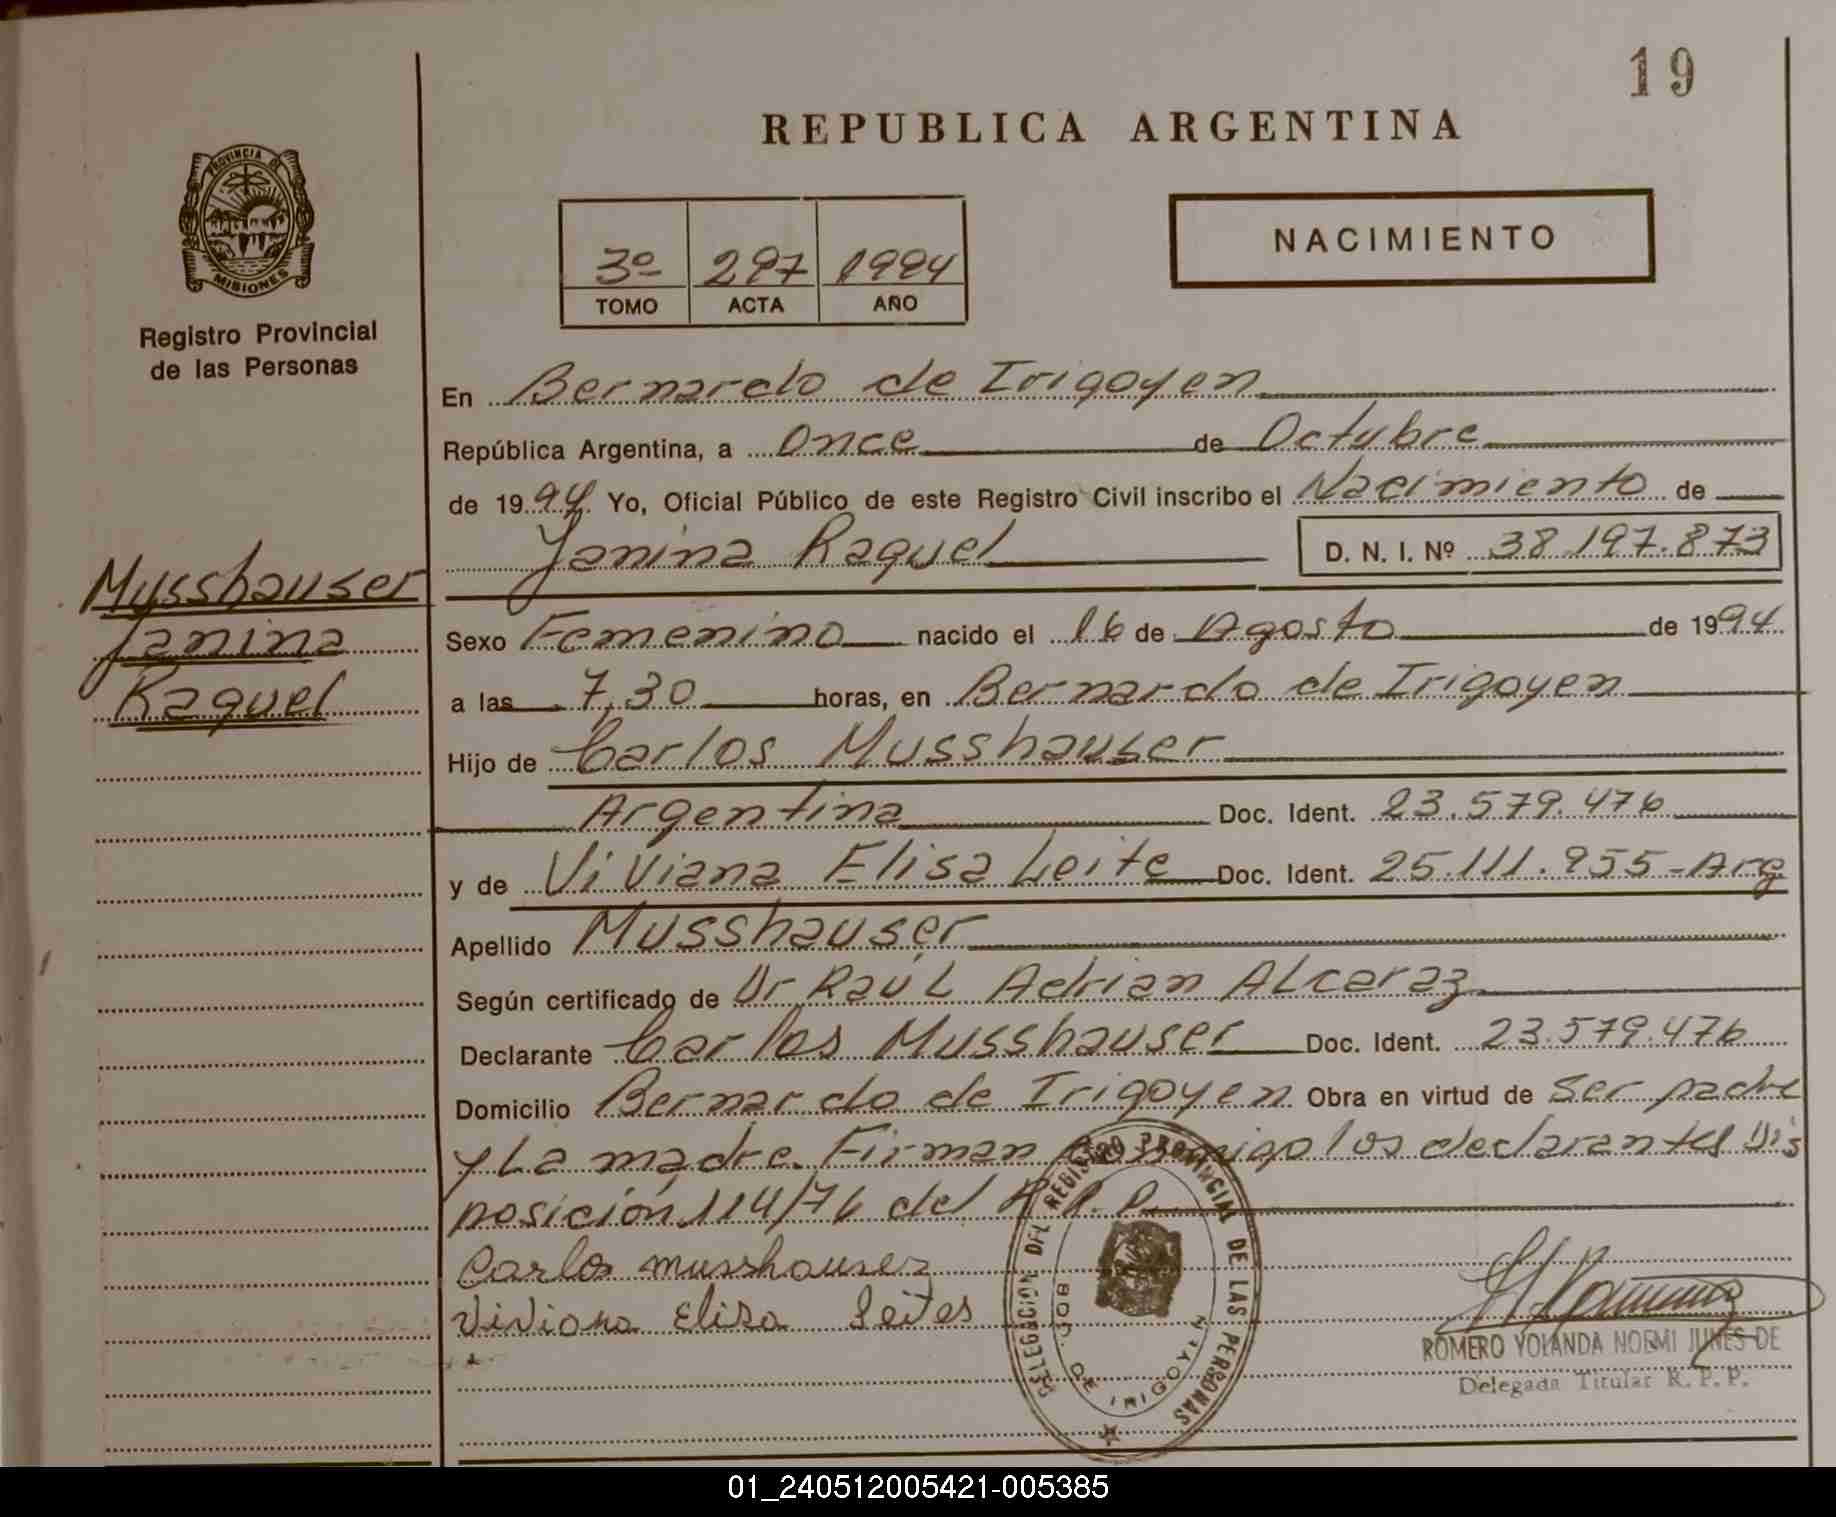 19
REPUBLICA ARGENTINA
PROVINCIA DE
MISIONES
Registro Provincial
de las Personas
3º 297 1994
TOMO ACTA AÑO
NACIMIENTO
En Bernardo de Irigoyen
República Argentina, a Once de Octubre
de 1994 Yo, Oficial Público de este Registro Civil inscribo el Nacimiento de
Janina Raquel D. N. I. Nº 38.197.873
Musshauser
Janina
Raquel
Sexo Femenino nacido el 16 de Agosto de 1994
a las 7,30 horas, en Bernardo de Irigoyen
Hijo de Carlos Musshauser
Argentina Doc. Ident. 23.579.476
y de Viviana Elisa Leite Doc. Ident. 25.111.955-Arg
Apellido Musshauser
Según certificado de Dr Raúl Adrian Alcaraz
Declarante Carlos Musshauser Doc. Ident. 23.579.476
Domicilio Bernardo de Irigoyen Obra en virtud de Ser padre
y La madre. Firman los declarantes Dis
posición 114/76 del R.P.P.
Carlos musshauser
Viviana Elisa Leites
DELEGACION DEL REGISTRO PROVINCIAL DE LAS PERSONAS
DE IRIGOYEN
ROMERO YOLANDA NOEMI JUNES DE
Delegada Titular R. P. P.
01_240512005421-005385